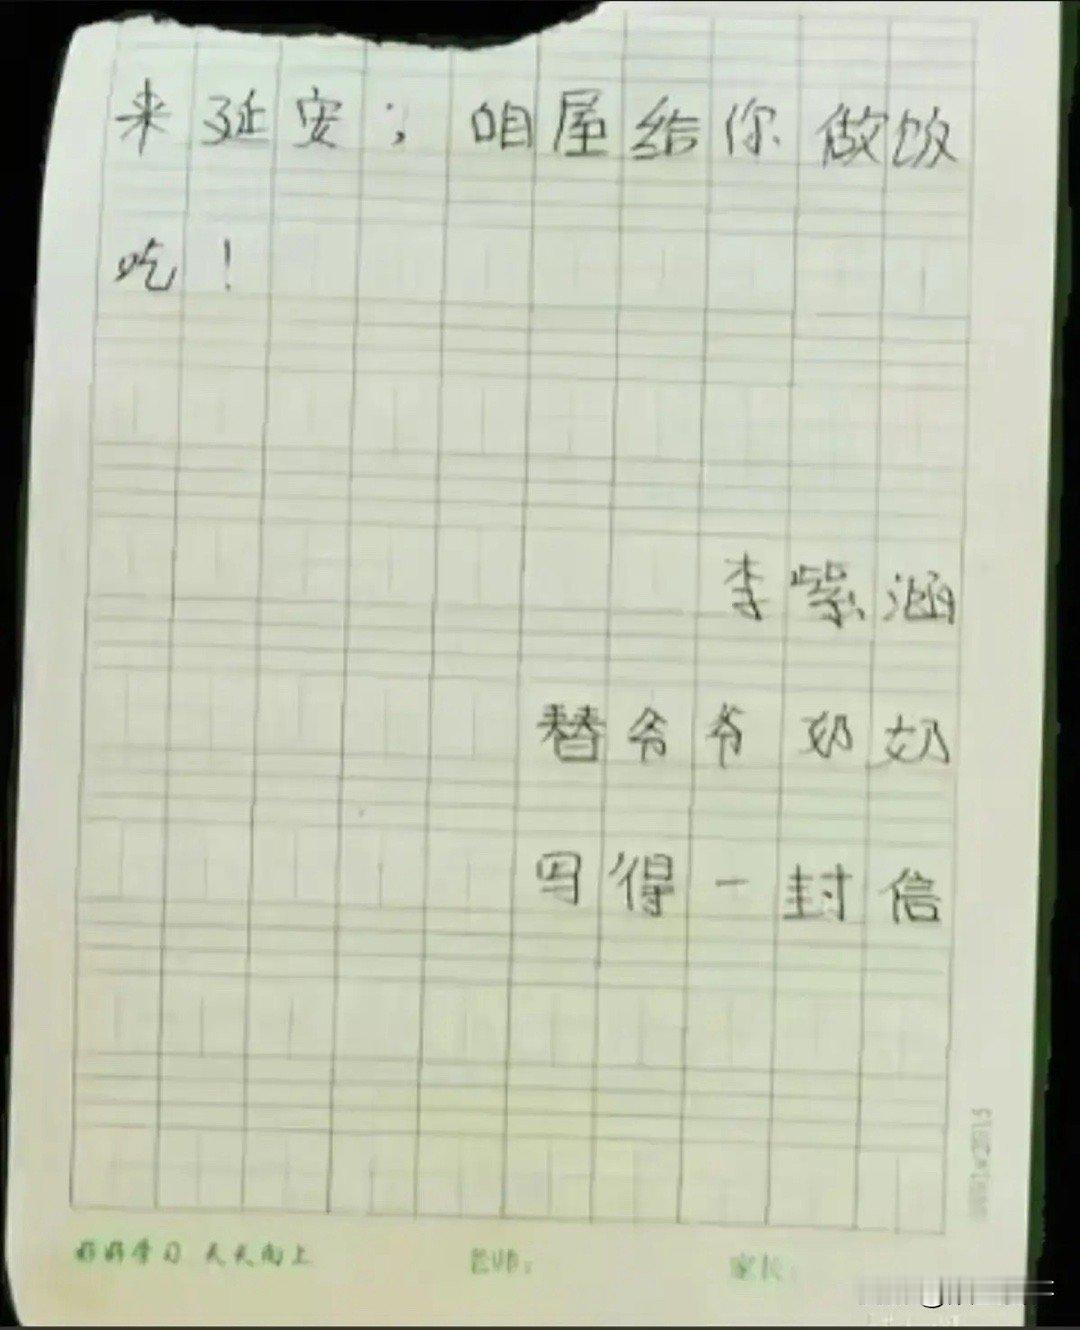 来延安；咱屋给你做饭
吃！
李紫涵
替爷爷奶奶
写得一封信
好好学习 天天向上
家长：